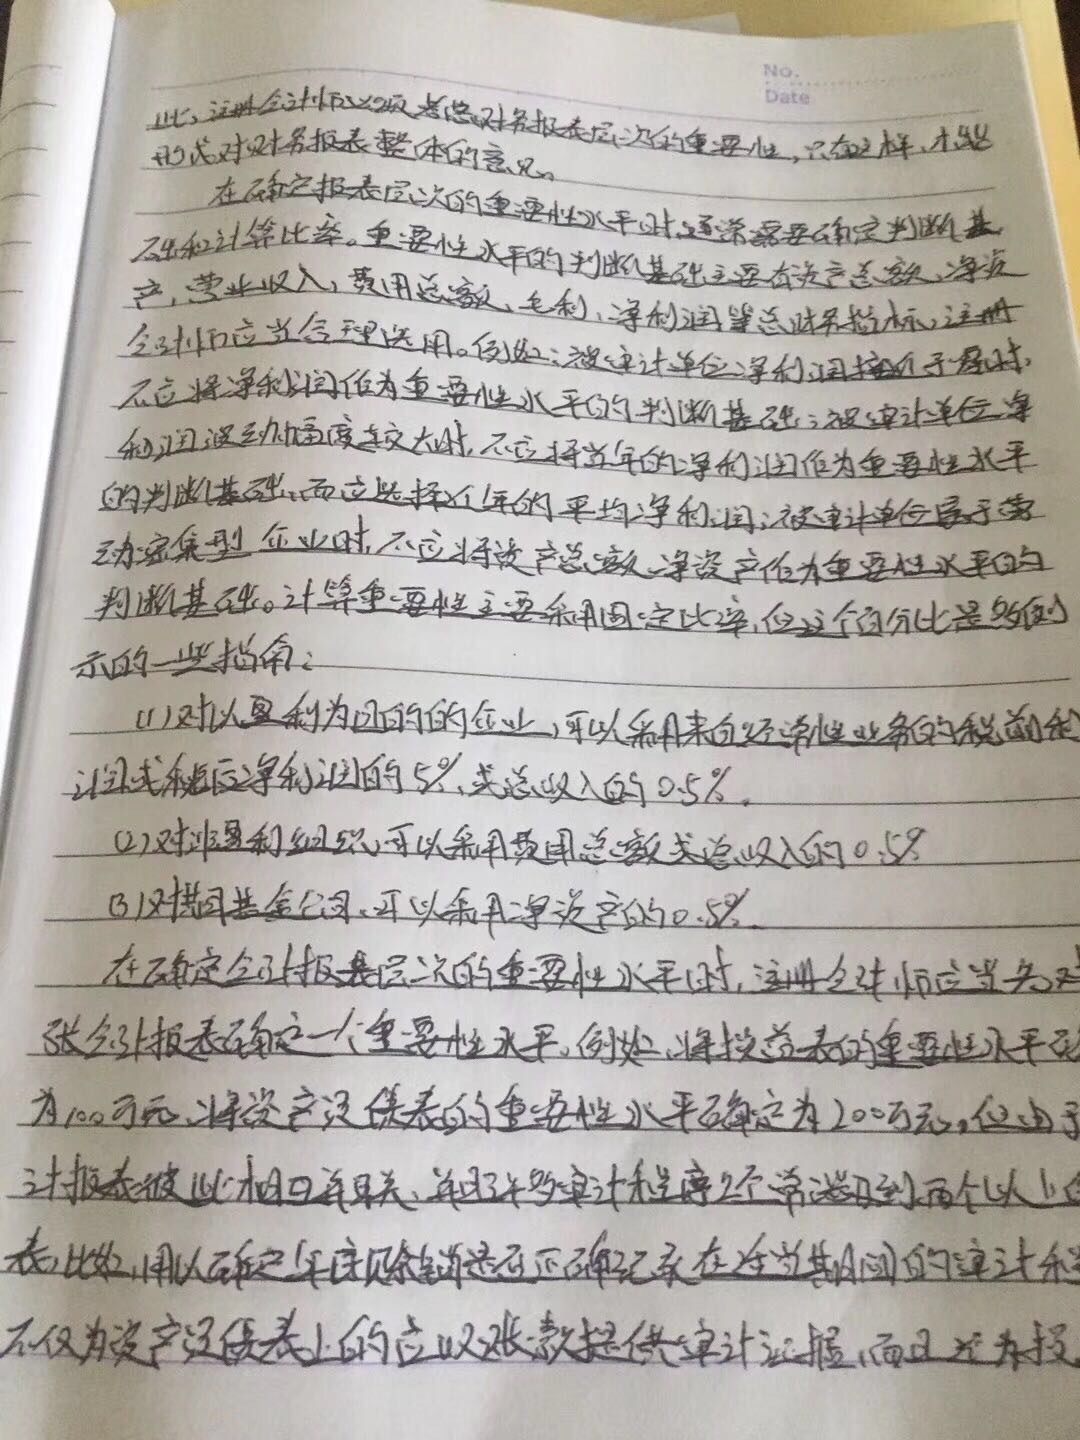 No.
Date
此，注册会计师必须考虑财务报表层次的重要性，只有这样，才能
形成对财务报表整体的意见。
在确定报表层次的重要性水平时，通常需要确定判断基
础和计算比率。重要性水平的判断基础主要有资产总额、净资
产，营业收入，费用总额、毛利、净利润等总财务指标，注册
会计师应当合理选用。例如：被审计单位净利润接近于零时，
不应将净利润作为重要性水平的判断基础；被审计单位净
利润波动幅度较大时，不应将当年的净利润作为重要性水平
的判断基础，而应选择近年的平均净利润；被审计单位属于劳
动密集型企业时，不应将资产总额、净资产作为重要性水平的
判断基础。计算重要性主要采用固定比率，但这个百分比是多
示的一些指南：
(1)对以盈利为目的的企业，可以采用来自经常性业务的税前利
润或税后净利润的5%，或总收入的0.5%。
(2)对非盈利组织，可以采用费用总额或总收入的0.5%
(3)对共同基金公司，可以采用净资产的0.5%。
在确定会计报表层次的重要性水平时，注册会计师应当先对
张会计报表确定一个重要性水平。例如，将损益表的重要性水平
为100万元，将资产负债表的重要性水平确定为200万元。但由于
计报表彼此相互关联，并且许多审计程序经常涉及到两个以上的
表，比如，用以确定年底赊销是否正确记录在适当期间的审计程
不仅为资产负债表上的应收账款提供审计证据，而且还为损